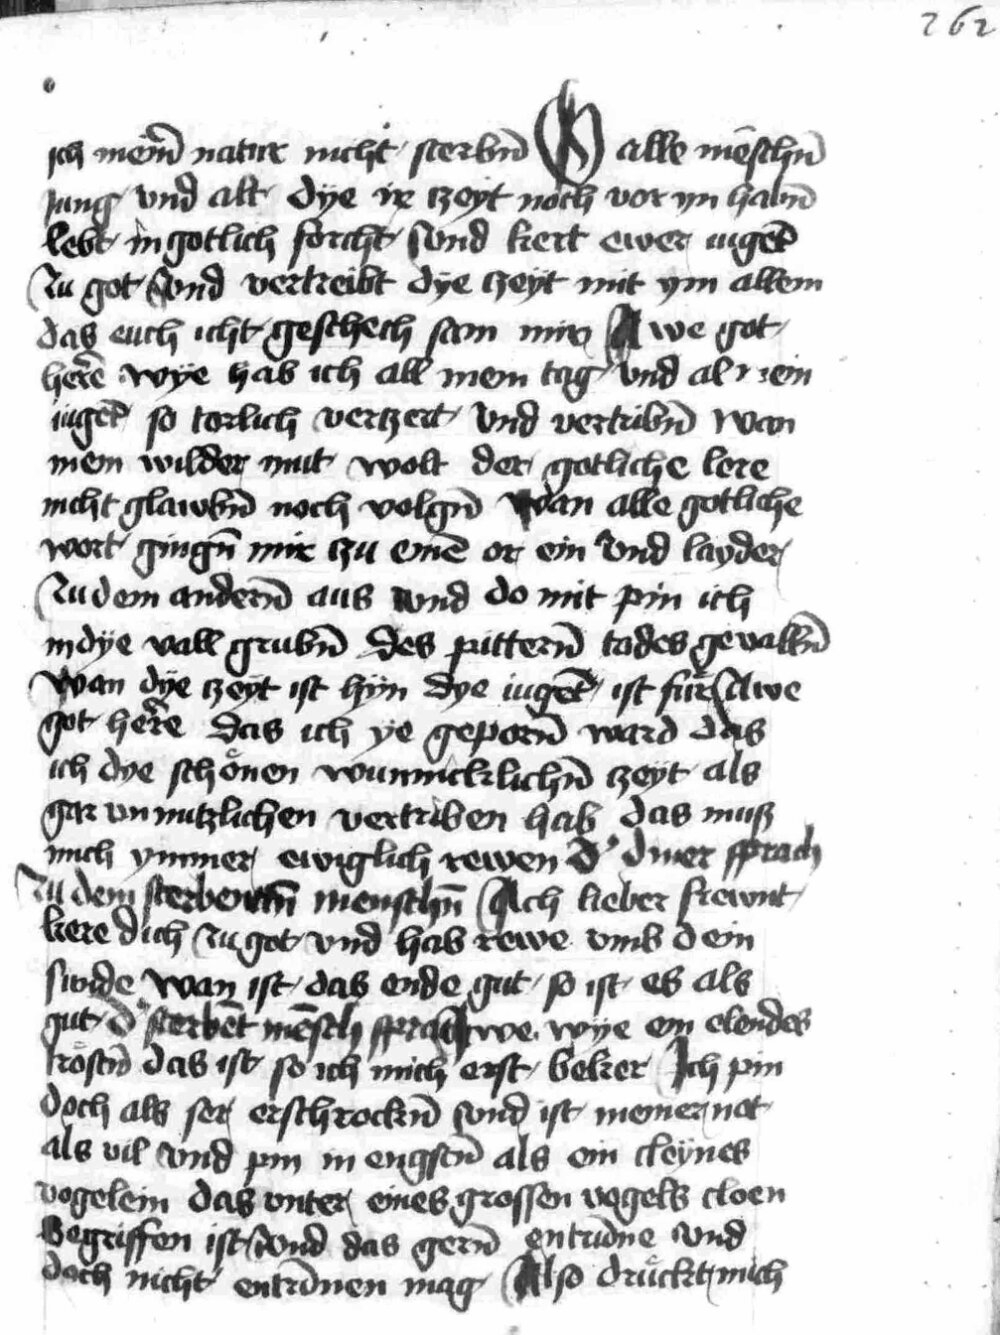 262
ich meiñ natur nicht sterbñ O alle mēschñ
jung vnd alt dÿe ir tzeyt noch vor yn habñ
lebt in gotlich forcht vnd kert ewer iugēt
zu got vnd vertreibt dÿe tzeÿt mit ym allem
das euch icht geschech sam mir Awe got
herē wÿe hab ich all mein tag vnd al mein
iugēt so torlich vertzert vnd vertribñ wan
mein wilder mut wolt der gotliche lere
nicht glawbñ noch volgñ wan alle gotliche
wort gingñ mir tzu einē or ein vnd layder
zu dem anderñ aus vnd do mit pin ich
in dÿe vall grubñ des pitterñ todes gevallñ
wan dÿe tzeÿt ist hÿn dye iugēt ist für Awe
got herre das ich ye geporñ ward das
ich dye schönen wunnicklichñ tzeyt als
gar vnnutzlichen vertriben hab das muß
mich ymmer ewiglich rewen D' diner sprach
zu dem sterbentñ menschñ Ach lieber frewnt
kere dich zu got vnd hab rewe vmb dein
sunde wan ist das ende gut so ist es als
gut D' sterbēt mēsch sprach Awe wÿe ein elendes
tröstñ das ist so ich mich erst beker Ich pin
doch als ser erschrockñ vnd ist meiner not
als vil vnd pin in engstñ als ein cleÿnes
vogelein das vnter eines grossen vogels cloen
Begriffen ist vnd das gerñ entrūne vnd
doch nicht entrīnnen mag Also drückt mich